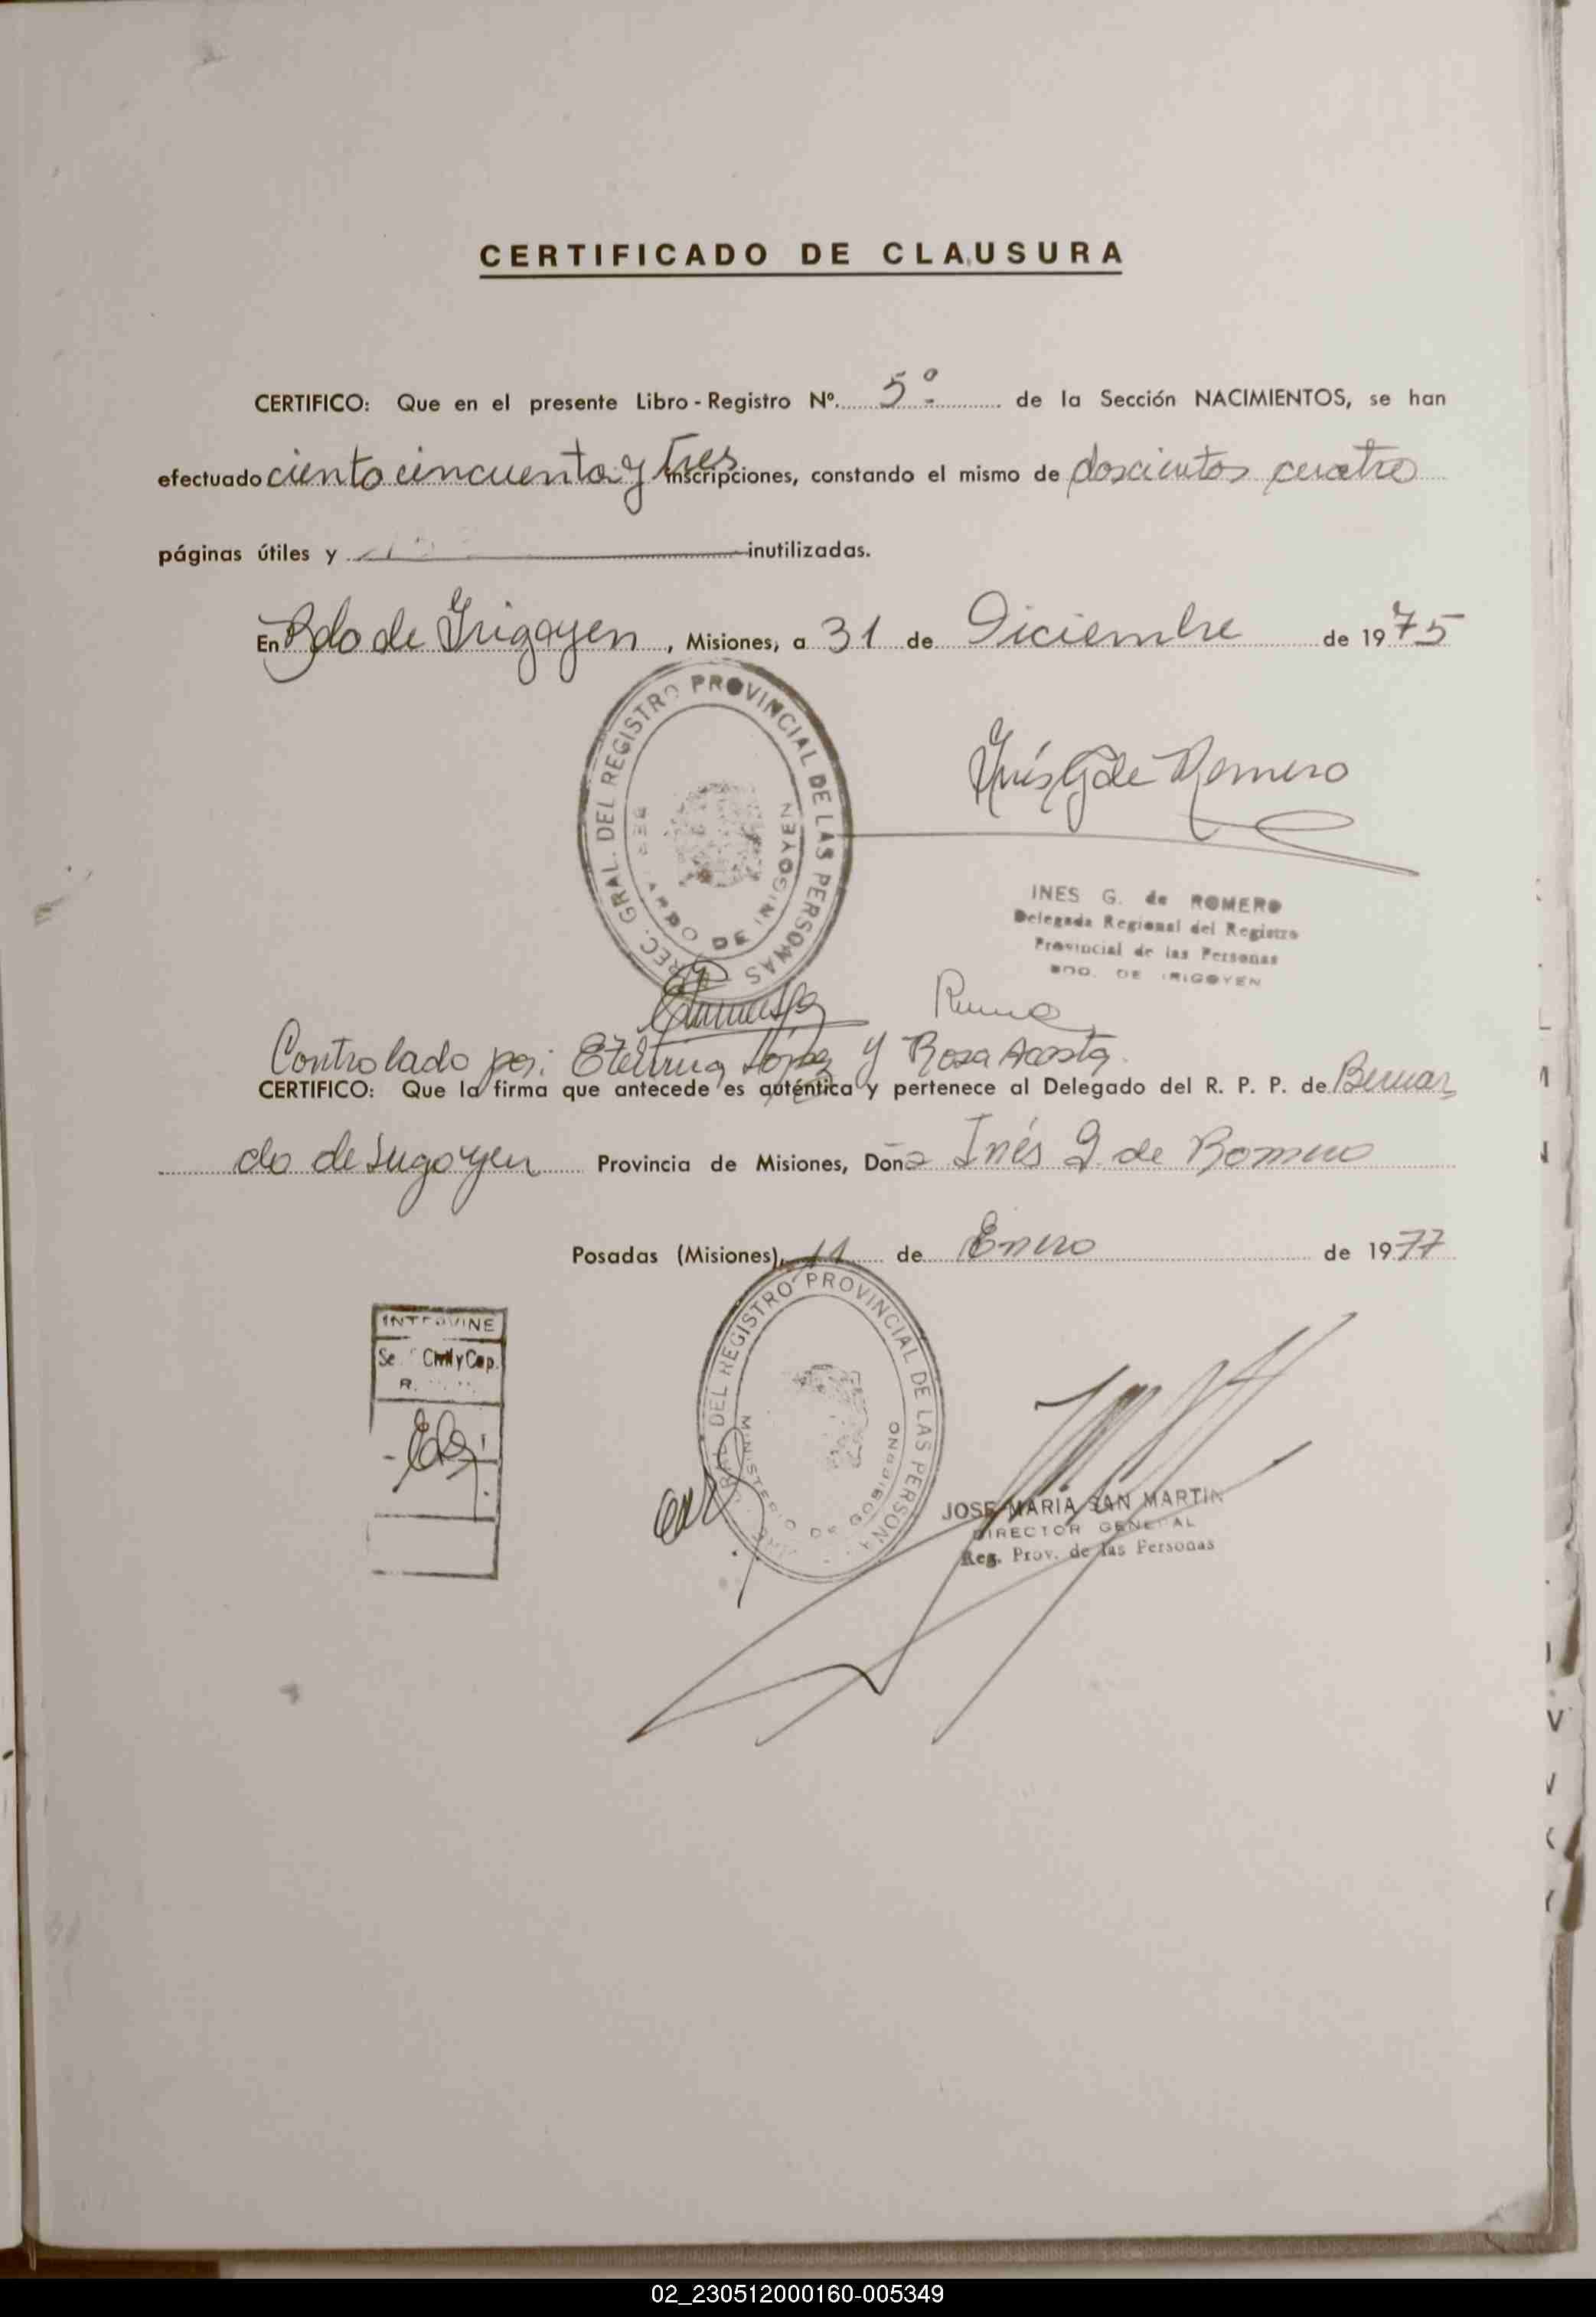 CERTIFICADO DE CLAUSURA
CERTIFICO: Que en el presente Libro - Registro Nº. 5º de la Sección NACIMIENTOS, se han
efectuado ciento cincuenta y tres inscripciones, constando el mismo de doscientos cuatro
páginas útiles y inutilizadas.
En Bdo de Irigoyen, Misiones, a 31 de Diciembre de 1975
REC. GRAL. DEL REGISTRO PROVINCIAL DE LAS PERSONAS
DE IRIGOYEN
Inés G de Romero
INES G. de ROMERO
Delegada Regional del Registro
Provincial de las Personas
BDO. DE IRIGOYEN
Controlado por: Etelvina López y Rosa Acosta.
CERTIFICO: Que la firma que antecede es auténtica y pertenece al Delegado del R. P. P. de Bernar
do de Irigoyen Provincia de Misiones, Doña Inés G. de Romero
Posadas (Misiones), 11 de Enero de 1977
INTERVINE
Civil y Cap.
GRAL. DEL REGISTRO PROVINCIAL DE LAS PERSONAS
MINISTERIO DE GOBIERNO
JOSE MARIA SAN MARTIN
DIRECTOR GENERAL
Reg. Prov. de las Personas
02_230512000160-005349